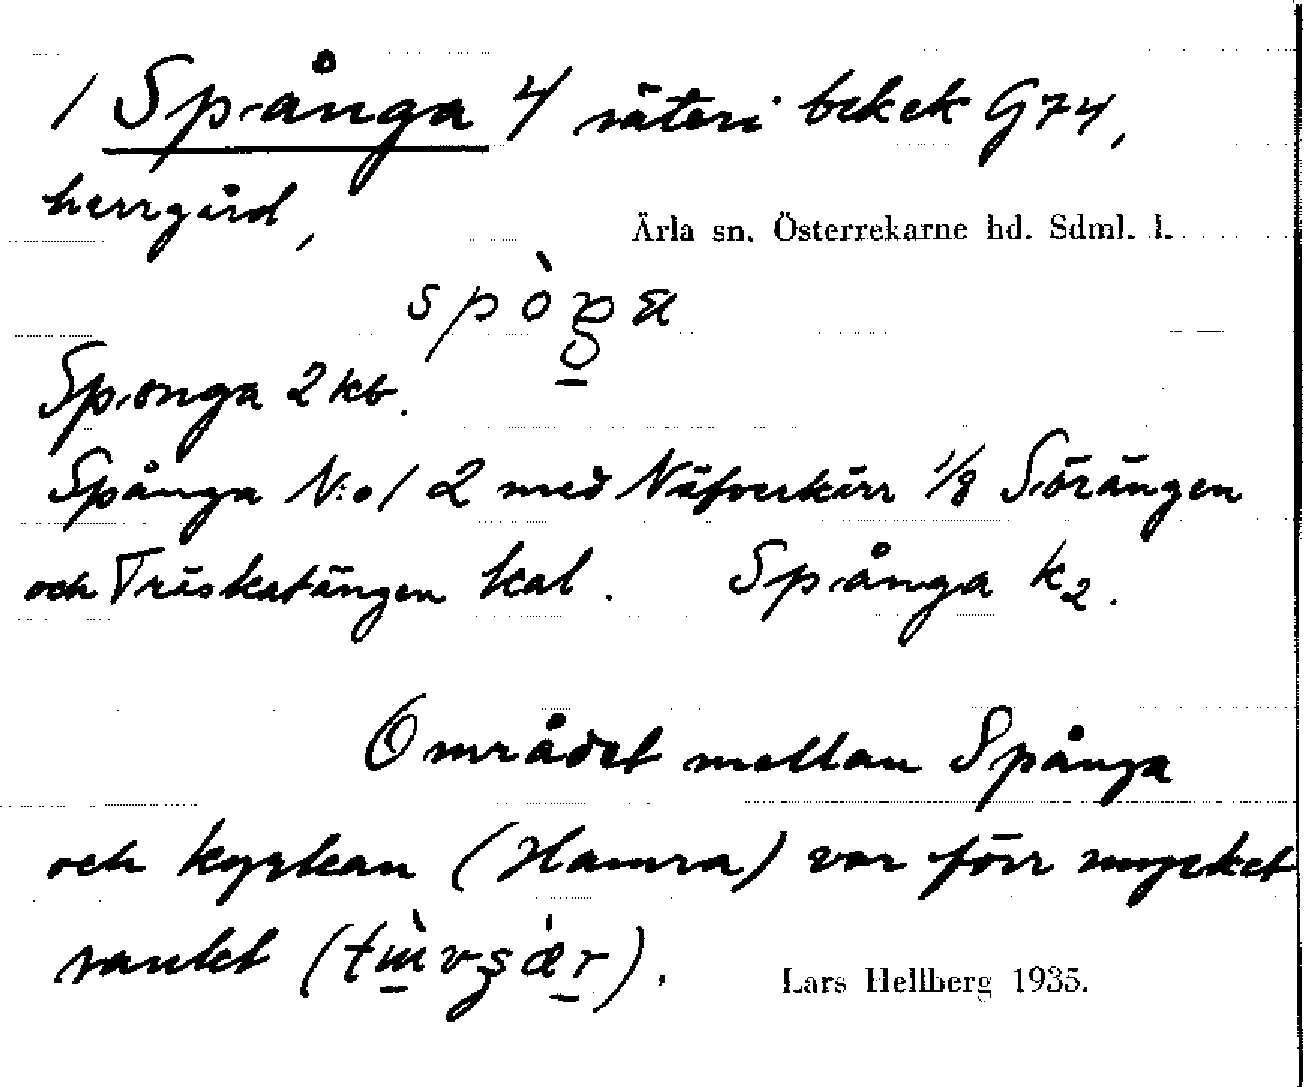 1 Spånga 4 säteri bekek G74,
herrgård,
Ärla sn. Österrekarne hd. Sdml. l.
Sponga 2 kb.
Spånga N:o 1 2 med Näfverkärr 1/8 Sörängen
och Träskatängen kal. Spånga k2.
Området mellan Spånga
och kyrkan (Hamra) var förr mycket
sankt
Lars Hellberg 1935.